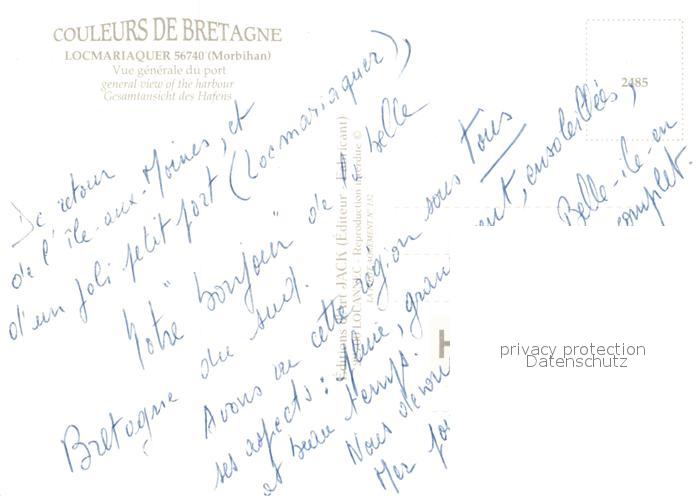 COULEURS DE BRETAGNE
LOCMARIAQUER 56740 (Morbihan)
Vue générale du port
general view of the harbour
Gesamtansicht des Hafens
2485
De retour
de l'île-aux-Moines, et
d'un joli petit port (Locmariaquer),
Notre "bonjour" de la belle
Bretagne du sud.
Avons vu cette région sous tous
ses aspects : pluie, gran ent, ensoleillées,
et beau temps. Belle-île-en
Nous devon complet.
Mer
Éditions d'Art JACK (Éditeur - Fabricant)
LOUANNEC - Reproduction interdite ©
privacy protection
Datenschutz